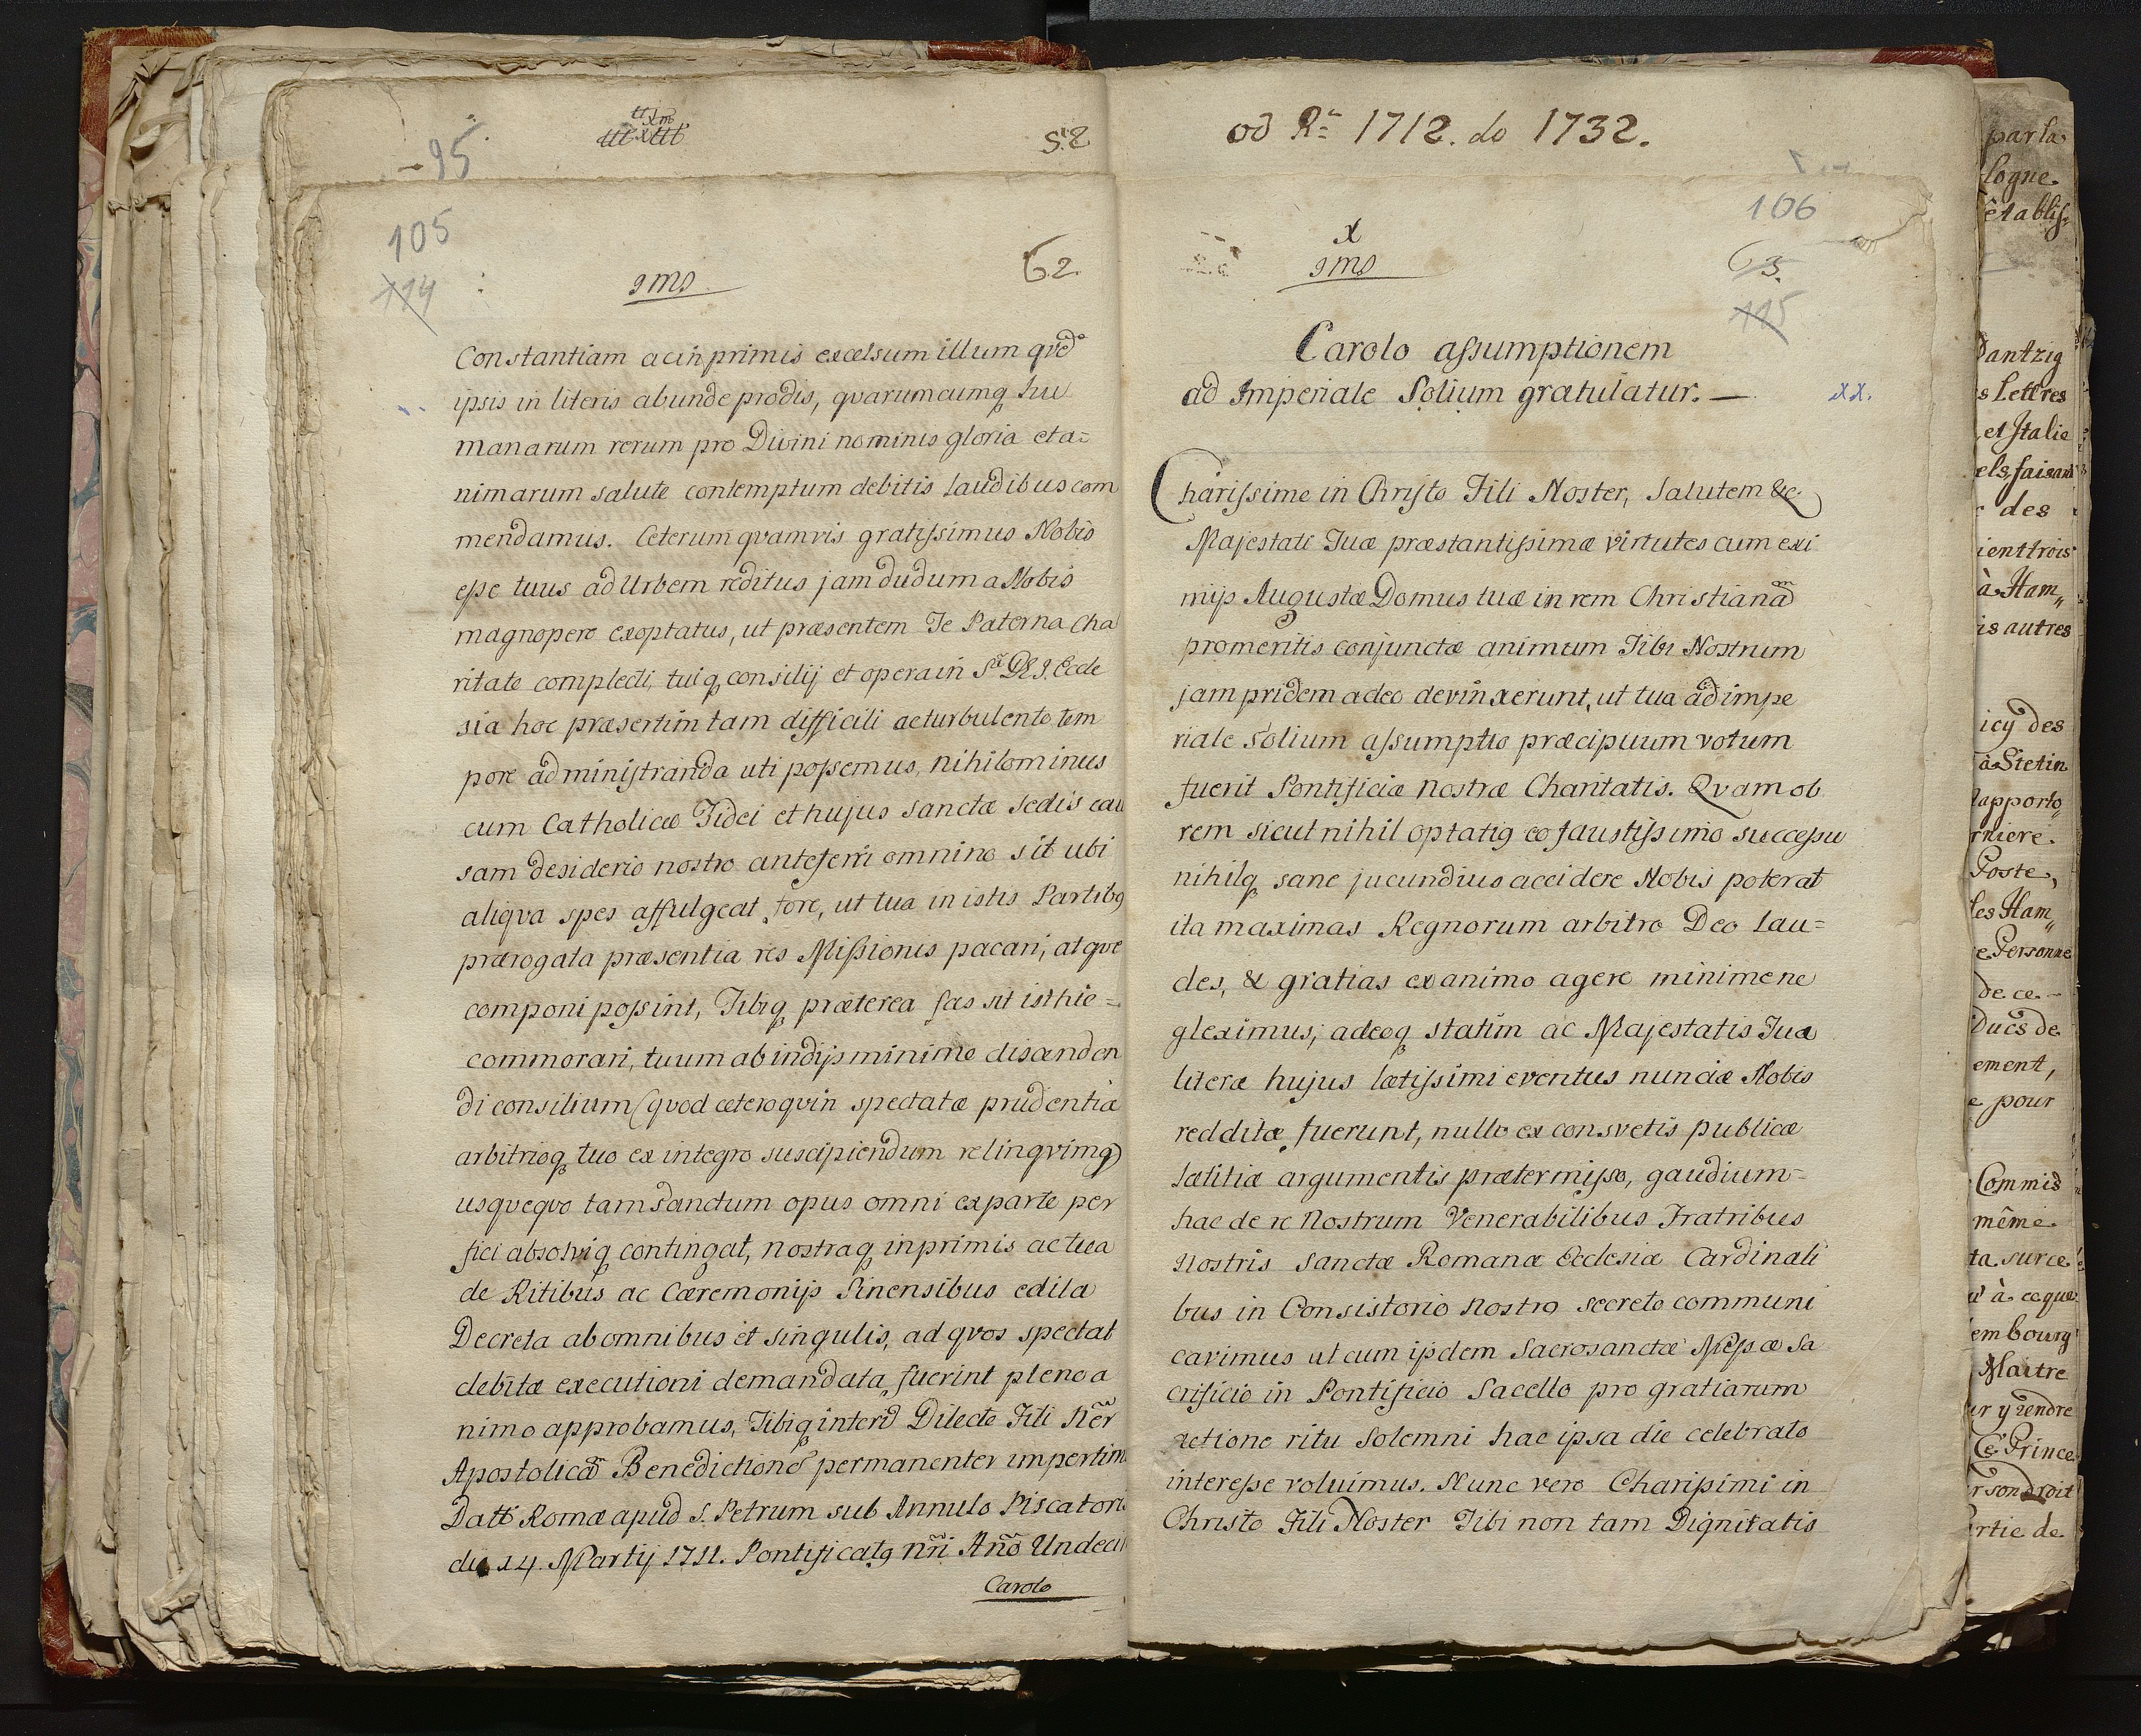 95
S.2
105
114
62.
9mo
Constantiam ac in primis excelsum illum qve
ipsis in literis abunde prodis, qvarumcumq hu
manarum rerum pro Divini nominis gloria et a=
nimarum salute contemptum debitis laudibus com
mendamus. Ceterum qvamvis gratissimus Nobis
esse tuus ad Urbem reditus jam dudum a Nobis
magnopere exoptatus, ut præsentem Te Paterna Cha
ritate complecti, tuiq consilij et opera in Ecele
sia hoc præsertim tam difficili ac turbulento tem
pore administranda uti possemus, nihilominus
cum Catholicæ Fidei et hujus Sanctæ Sedis cau
sam desiderio nostro anteferri omnino sit ubi
aliqva spes affulgeat fore, ut tua in istis Partibg
prærogata præsentia res Missionis pacari, atqve
componi possint, Tibiq præterea fas sit isthic=
commorari, tuum ab indijs minime discenden
di consilium (qvod ceteroqvin spectatæ prudentia
arbitrioq tuo ex integro suscipiendum relinqvimg)
usqveqvo tam Sanctum opus omni ex parte per
fici absolviq contingat, nostraq inprimis ac tua
de Ritibus ac Cæremonijs Sinensibus edita
Decreta ab omnibus et singulis, ad qvos spectat
debitæ executioni demandata fuerint pleno a
nimo approbamus, Tibiq interd Dilecte Fili Ner
Apostolicam Benedictione permanenter impertim
Datt Romæ apud S. Petrum sub Annulo Piscatoris
die 14. Martij 1711. Pontificatg nri Ano Undeci
Carolo
od Rr 1712. do 1732.
106
63.
115
x
9mo
Carolo assumptionem
ad Imperiale Solium gratulatur. —
xx.
Charissime in Christo Fili Noster, Salutem &c
Majestati Tuæ præstantissimæ virtutes cum exi
mijs Augustæ Domus tuæ in rem Christianam
promeritis conjunctæ animum Tibi Nostrum
jam pridem adeo devinxerunt, ut tua ad impe
riale Solium assumptio præcipuum votum
fuerit Pontificiæ nostræ Charitatis. Qvam ob
rem sicut nihil optatig eo faustissimo successu
nihilq sane jucundius accidere Nobis poterat
ita maximas Regnorum arbitro Deo lau=
des, & gratias ex animo agere minime ne
gleximus; adeoq statim ac Majestatis Tuæ
literæ hujus lætissimi eventus nunciæ Nobis
redditæ fuerunt, nullo ex consvetis publicæ
lætitiæ argumentis prætermisso, gaudium=
hac de re Nostrum Venerabilibus Fratribus
Nostris Sanctæ Romanæ Ecclesiæ Cardinali
bus in Consistorio nostro secreto communi
cavimus ut cum ijsdem Sacrosanctæ Missæ Sa
crificio in Pontificio Sacello pro gratiarum
actione ritu Solemni hac ipsa die celebrato
interesse voluimus. Nunc vero Charissimi in
Christo Fili Noster Tibi non tam Dignitatis
parla
logne.
êtablis=
Dantzig
s Lettres
et Italie
els faisant
des
ient trois
à Ham„
is autres
icy des
à Stetin
rniere.
Poste,
les Ham„
e Personne
de ce
Ducs de
ement,
e pour
Commis
même
ta surce
u' à ceque
embourg
Maitre
er y rendre
Ce Prince
r son droit
rtie de